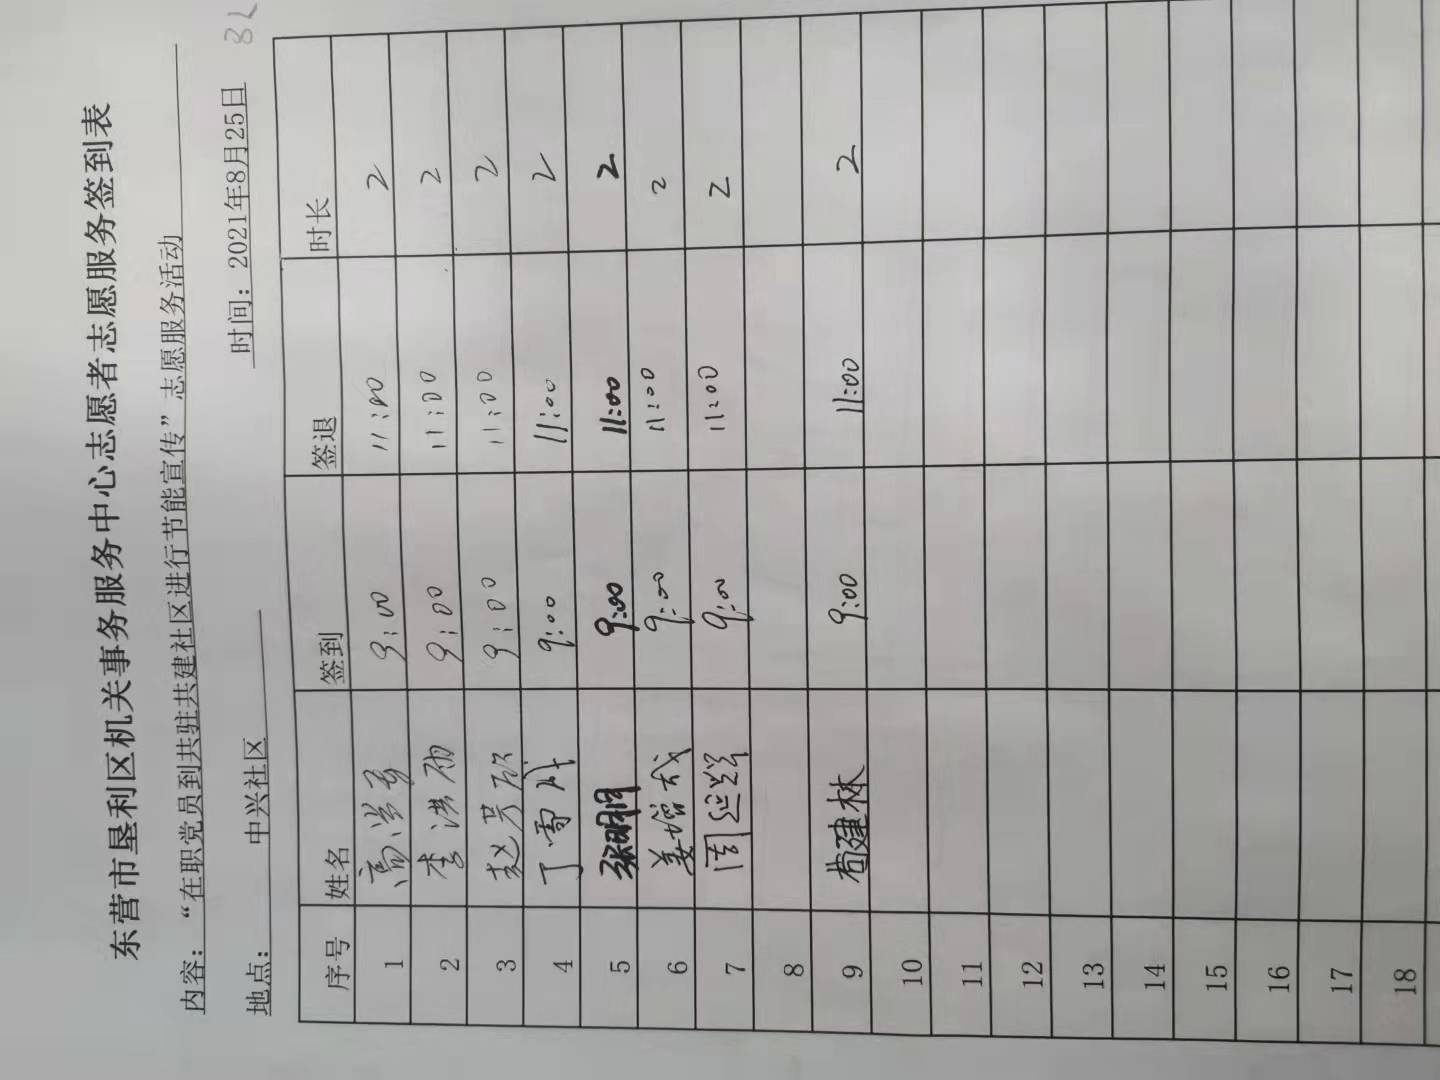 东营市垦利区机关事务服务中心志愿者志愿服务签到表
内容：“在职党员到共驻共建社区进行节能宣传”志愿服务活动
地点： 中兴社区 时间：2021年8月25日
序号 姓名 签到 签退 时长
1 9:00 11:00 2
2 李洪雨 9:00 11:00 2
3 赵芳欣 9:00 11:00 2
4 丁雪 9:00 11:00 2
5 张明月 9:00 11:00 2
6 姜增武 9:00 11:00 2
7 周延 9:00 11:00 2
8
9 苟建林 9:00 11:00 2
10
11
12
13
14
15
16
17
18